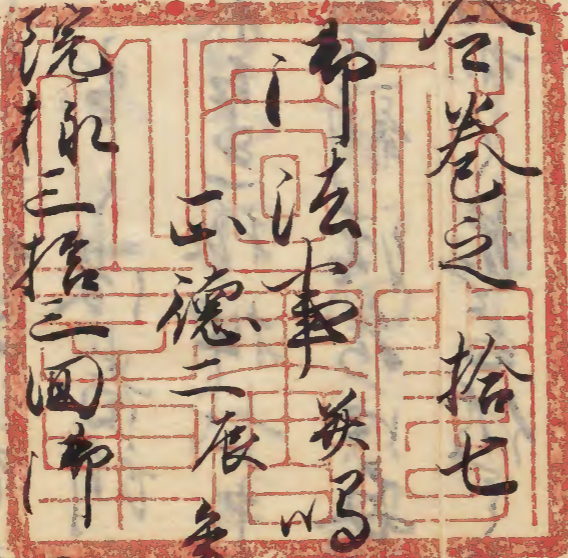 合巻之 拾七
御法事 并鳴
正徳二辰
院様三拾三回御